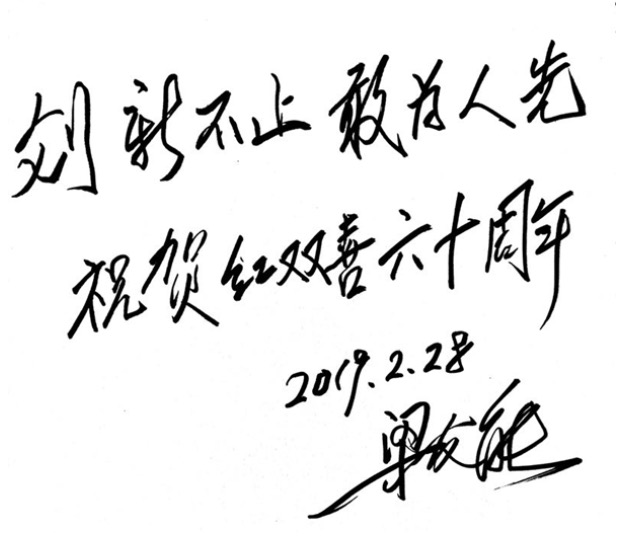 创新不止 敢为人先
祝贺红双喜六十周年
2019.2.28